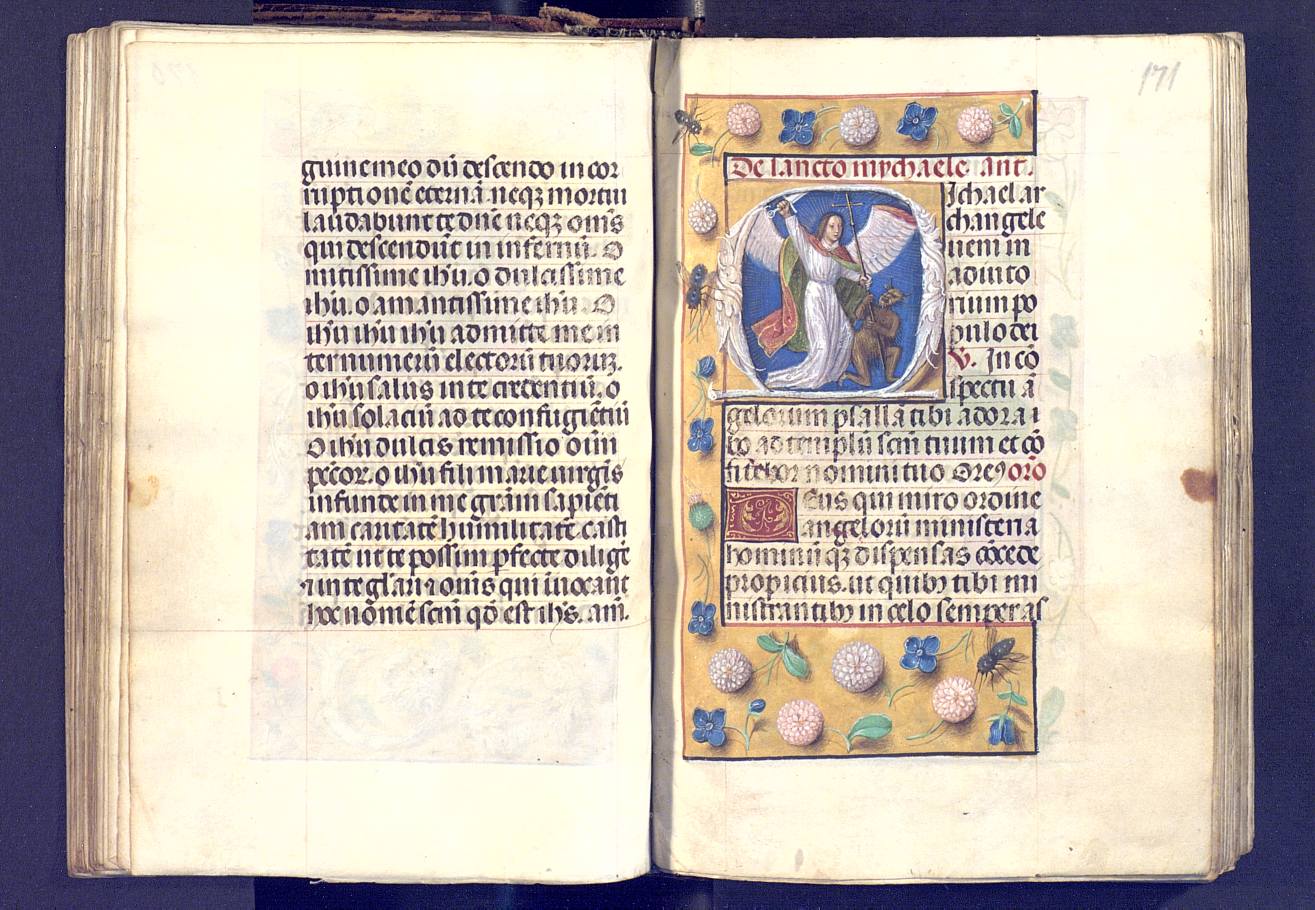 guine meo dū descendo in cor
ruptionē eternā. neqꝫ mortui
laudabunt te dn̄e neqꝫ om̄s
qui descendūt in infernū. O
mitissime ih̄u. o dulcissime
ih̄u. o amantissime ih̄u. O
ih̄u ih̄u ih̄u admitte me in
ter numerū electorū tuorūꝫ.
o ih̄u salus in te credentiū. o
ih̄u solaciū ad te confugiētiū
O ih̄u dulcis remissio oīm
pēcor. o ih̄u fili marie virgīs
infunde in me grām sapiēti
am caritatē humilitatē. casti
tatē ut te possim pfecte dilige
in te glari. oīnīs qui īuocant
hoc nomē scm̄ qd̄ est ih̄s. am̄.
171
De sancto mychaele. Ant.
Ichael ar
changele
ueni in
adiuto
rium po
pulo dei
V. In cō
spectu ā
gelorum psallā tibi adorā
bo ad templū scm̄ tuum et cō
fitebor nomini tuo Oreꝯ oro
Eus qui miro ordine
angelorū ministeria
hominū qꝫ dispensas cōcede
propicius. ut quibꝫ tibi mi
nistrantibꝫ in celo semper as